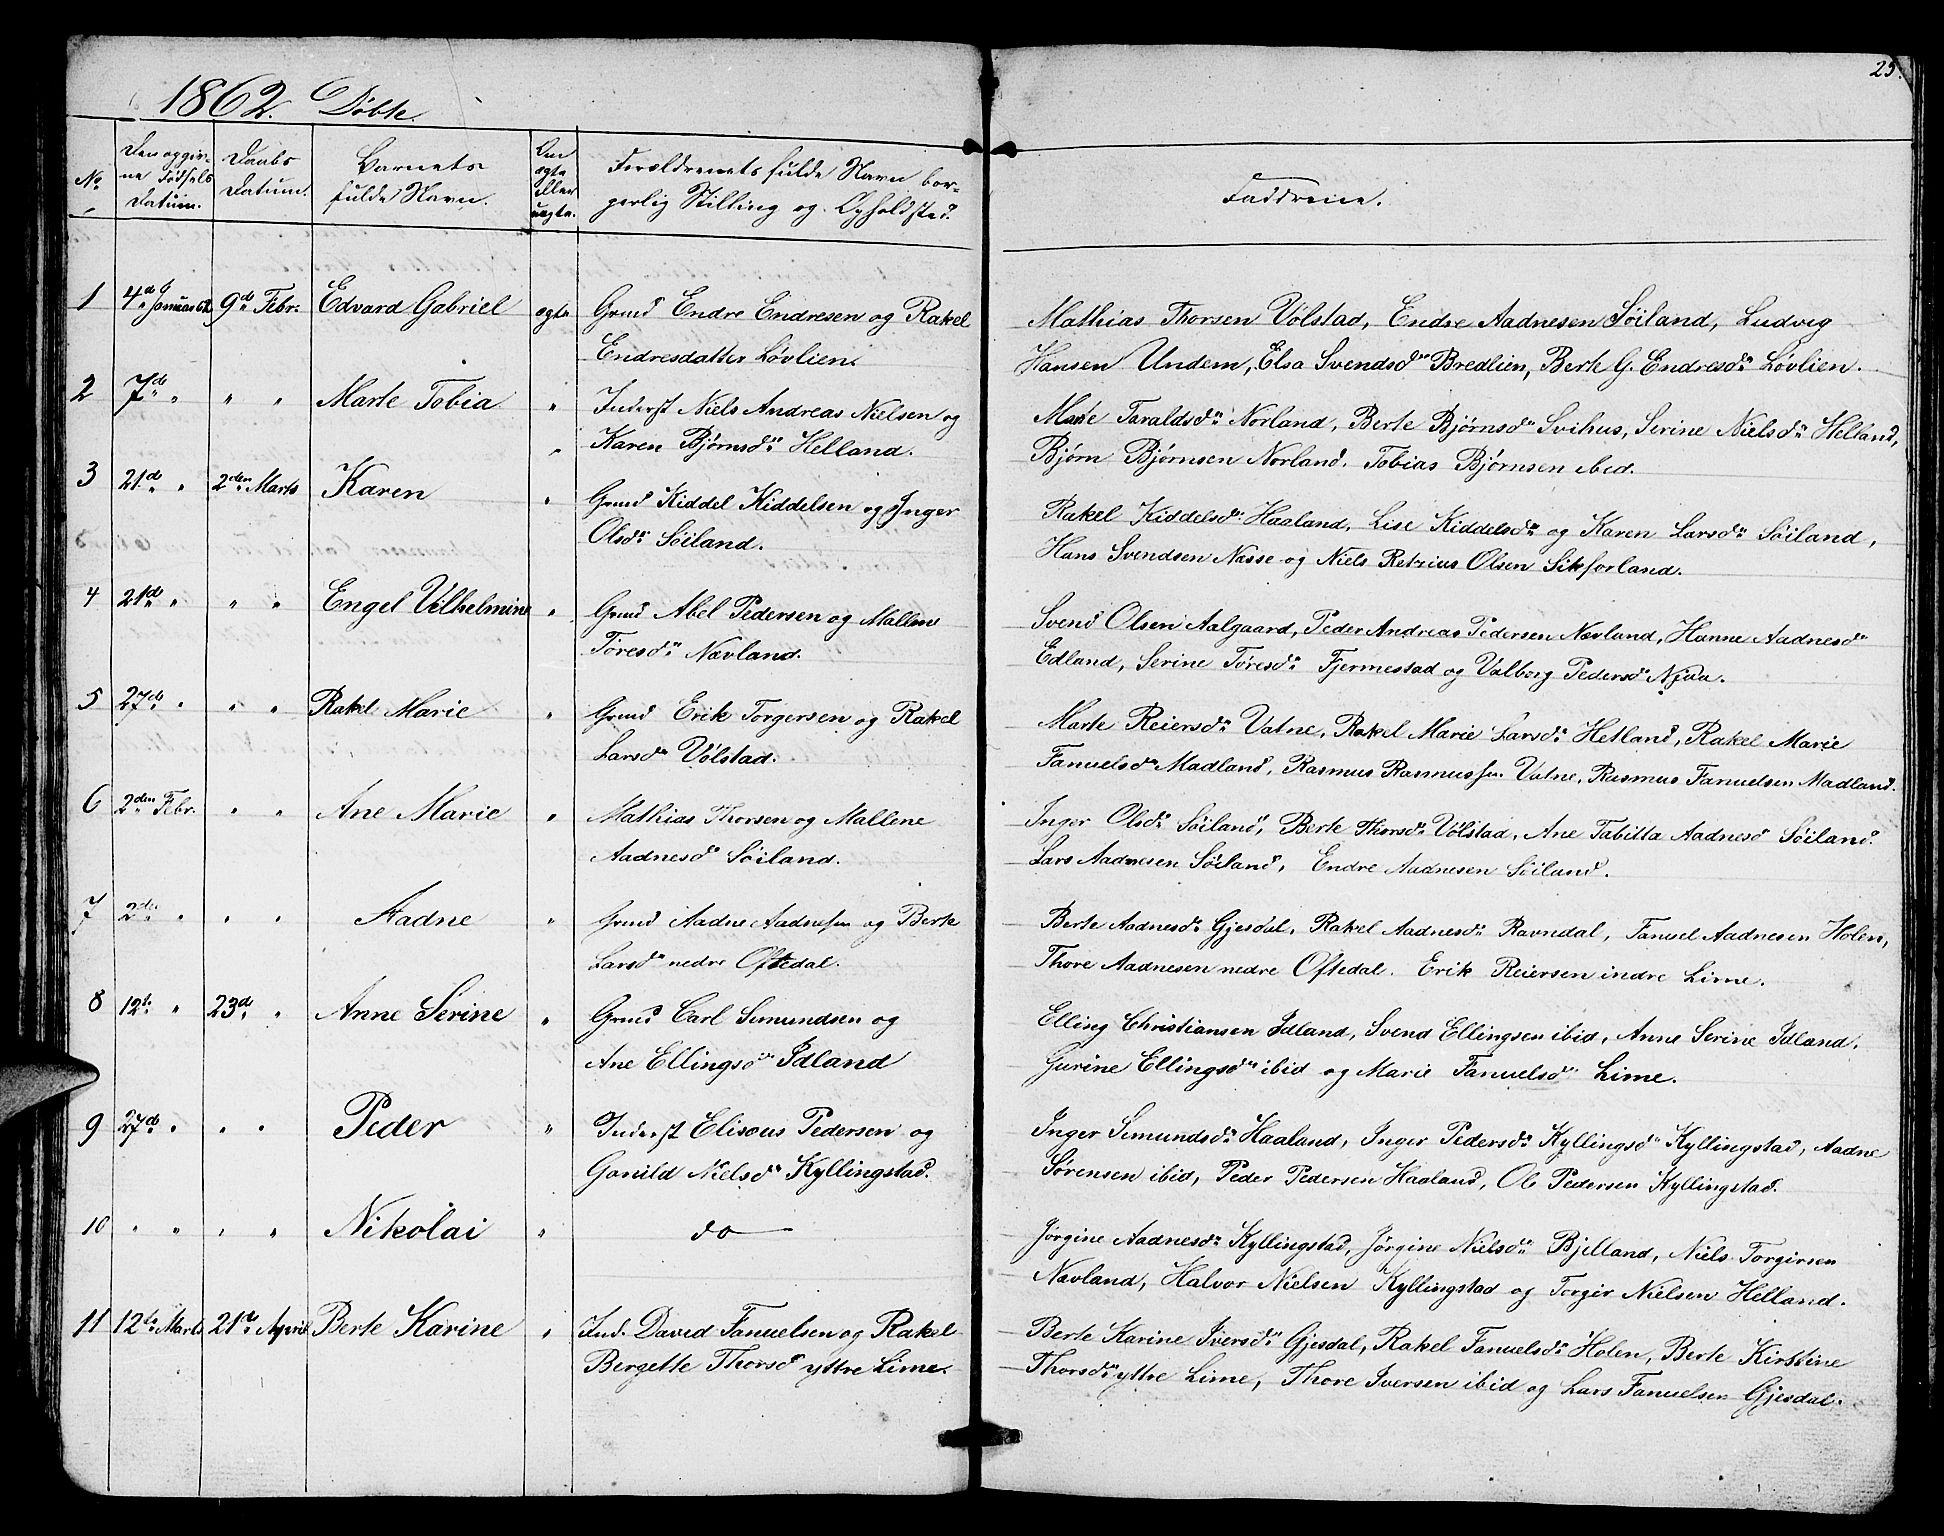 25.
1862. Döbte.
No
Den opgiv-
ne Fødsels
Datum.
Daabs
Datum.
Barnets
fulde Navn.
Om
ægte
eller
uægte.
Forældrenes fulde Navn bor-
gerlig Stilling og Opholdsted.
Faddrene.
1 4de Januar 62 9de Febr. Edvard Gabriel ægte Grmd Endre Endresen og Rakel
Endresdatter Løvlien.
Mathias Thorsen Vølstad, Endre Aadnesen Søiland, Ludvig
Hansen Undem, Elsa Svendsdr Bredlien, Berte G. Endresdr Løvlien.
2 7de " " " Marte Tobia " Inderst Niels Andreas Nielsen og
" Karen Bjørnsdr Helland.
Marie Taraldsdr Norland, Berte Bjørnsdr Svihus, Serine Nielsdr Helland,
Bjørn Bjørnsen Norland. Tobias Bjørnsen ibid.
3 21de " 2den Marts Karen " Grmd Kiddel Kiddelsen og Inger
Olsdr Søiland.
Rakel Kiddelsdr Haaland, Lise Kiddelsdr og Karen Larsdr Søiland,
Hans Svendsen Nesse og Niels Retrius Olsen Sikforland.
4 21de " " " Engel Vilhelmine " Grmd Abel Pedersen og Mallene
Toresdr Nævland.
Svend Olsen Aalgaard, Peder Andreas Pedersen Nævland, Hanne Aadnesdr
Edland, Serine Tøresdr Fjermestad og Valborg Pedersdr Njaa.
5 27de " " " Rakel Marie " Grmd Erik Torgersen og Rakel
Larsdr Vølstad.
Marte Reiersdr Vatne, Rakel Marie Larsdr Hetland, Rakel Marie
Fanuelsdr Madland, Rasmus Rasmussen Vatne, Rasmus Fanuelsen Madland.
6 2den Febr. " " Ane Marie " Mathias Thorsen og Mallene
Aadnesdr Søiland.
Inger Olsdr Søiland, Berte Thorsdr Vølstad, Ane Tabitta Aadnesd Søiland.
Lars Aadnesen Søiland, Endre Aadnesen Søiland.
7 2den " " " Aadne " Grmd Aadne Aadnessen og Berte
Larsdr nedre Oftedal.
Berte Aadnesdr Gjesdal, Rakel Aadnesdr Ravndal, Fanuel Aadnesen Holen,
Thore Aadnesen nedre Oftedal. Erik Reiersen indre Lime.
8 12te " 23de " Anne Serine " Grmd Carl Simundsen og
Ane Ellingsdr Idland
Elling Christiansen Idland, Svend Ellingsen ibid, Anne Serine Idland,
Gurine Ellingsdr ibid og Marie Fanuelsdr Lime.
9 27de " " " Peder " Inderst Elisæus Pedersen og
Gonild Nielsdr Kyllingstad.
Inger Simundsdr Haaland, Inger Pedersdr Kyllingsdr Kyllingstad, Aadne
Sørensen ibid, Peder Pedersen Haaland, Ole Pedersen Kyllingstad.
10 " " " " Nikolai " do
Jørgine Aadnesdr Kyllingstad, Jørgine Nielsdr Bjelland, Niels Torgirsen
Nævland, Halvor Nielsen Kyllingstad og Torger Nielsen Helland.
11 12te Marts 21de April Berte Karine " Ind. David Fanuelsen og Rakel
Bergette Thorsd yttre Lime.
Berte Karine Iversdr Gjesdal, Rakel Fanuelsdr Holen, Berte Kirstine
Thorsdr yttre Lime, Thore Iversen ibid og Lars Fanuelsen Gjesdal.